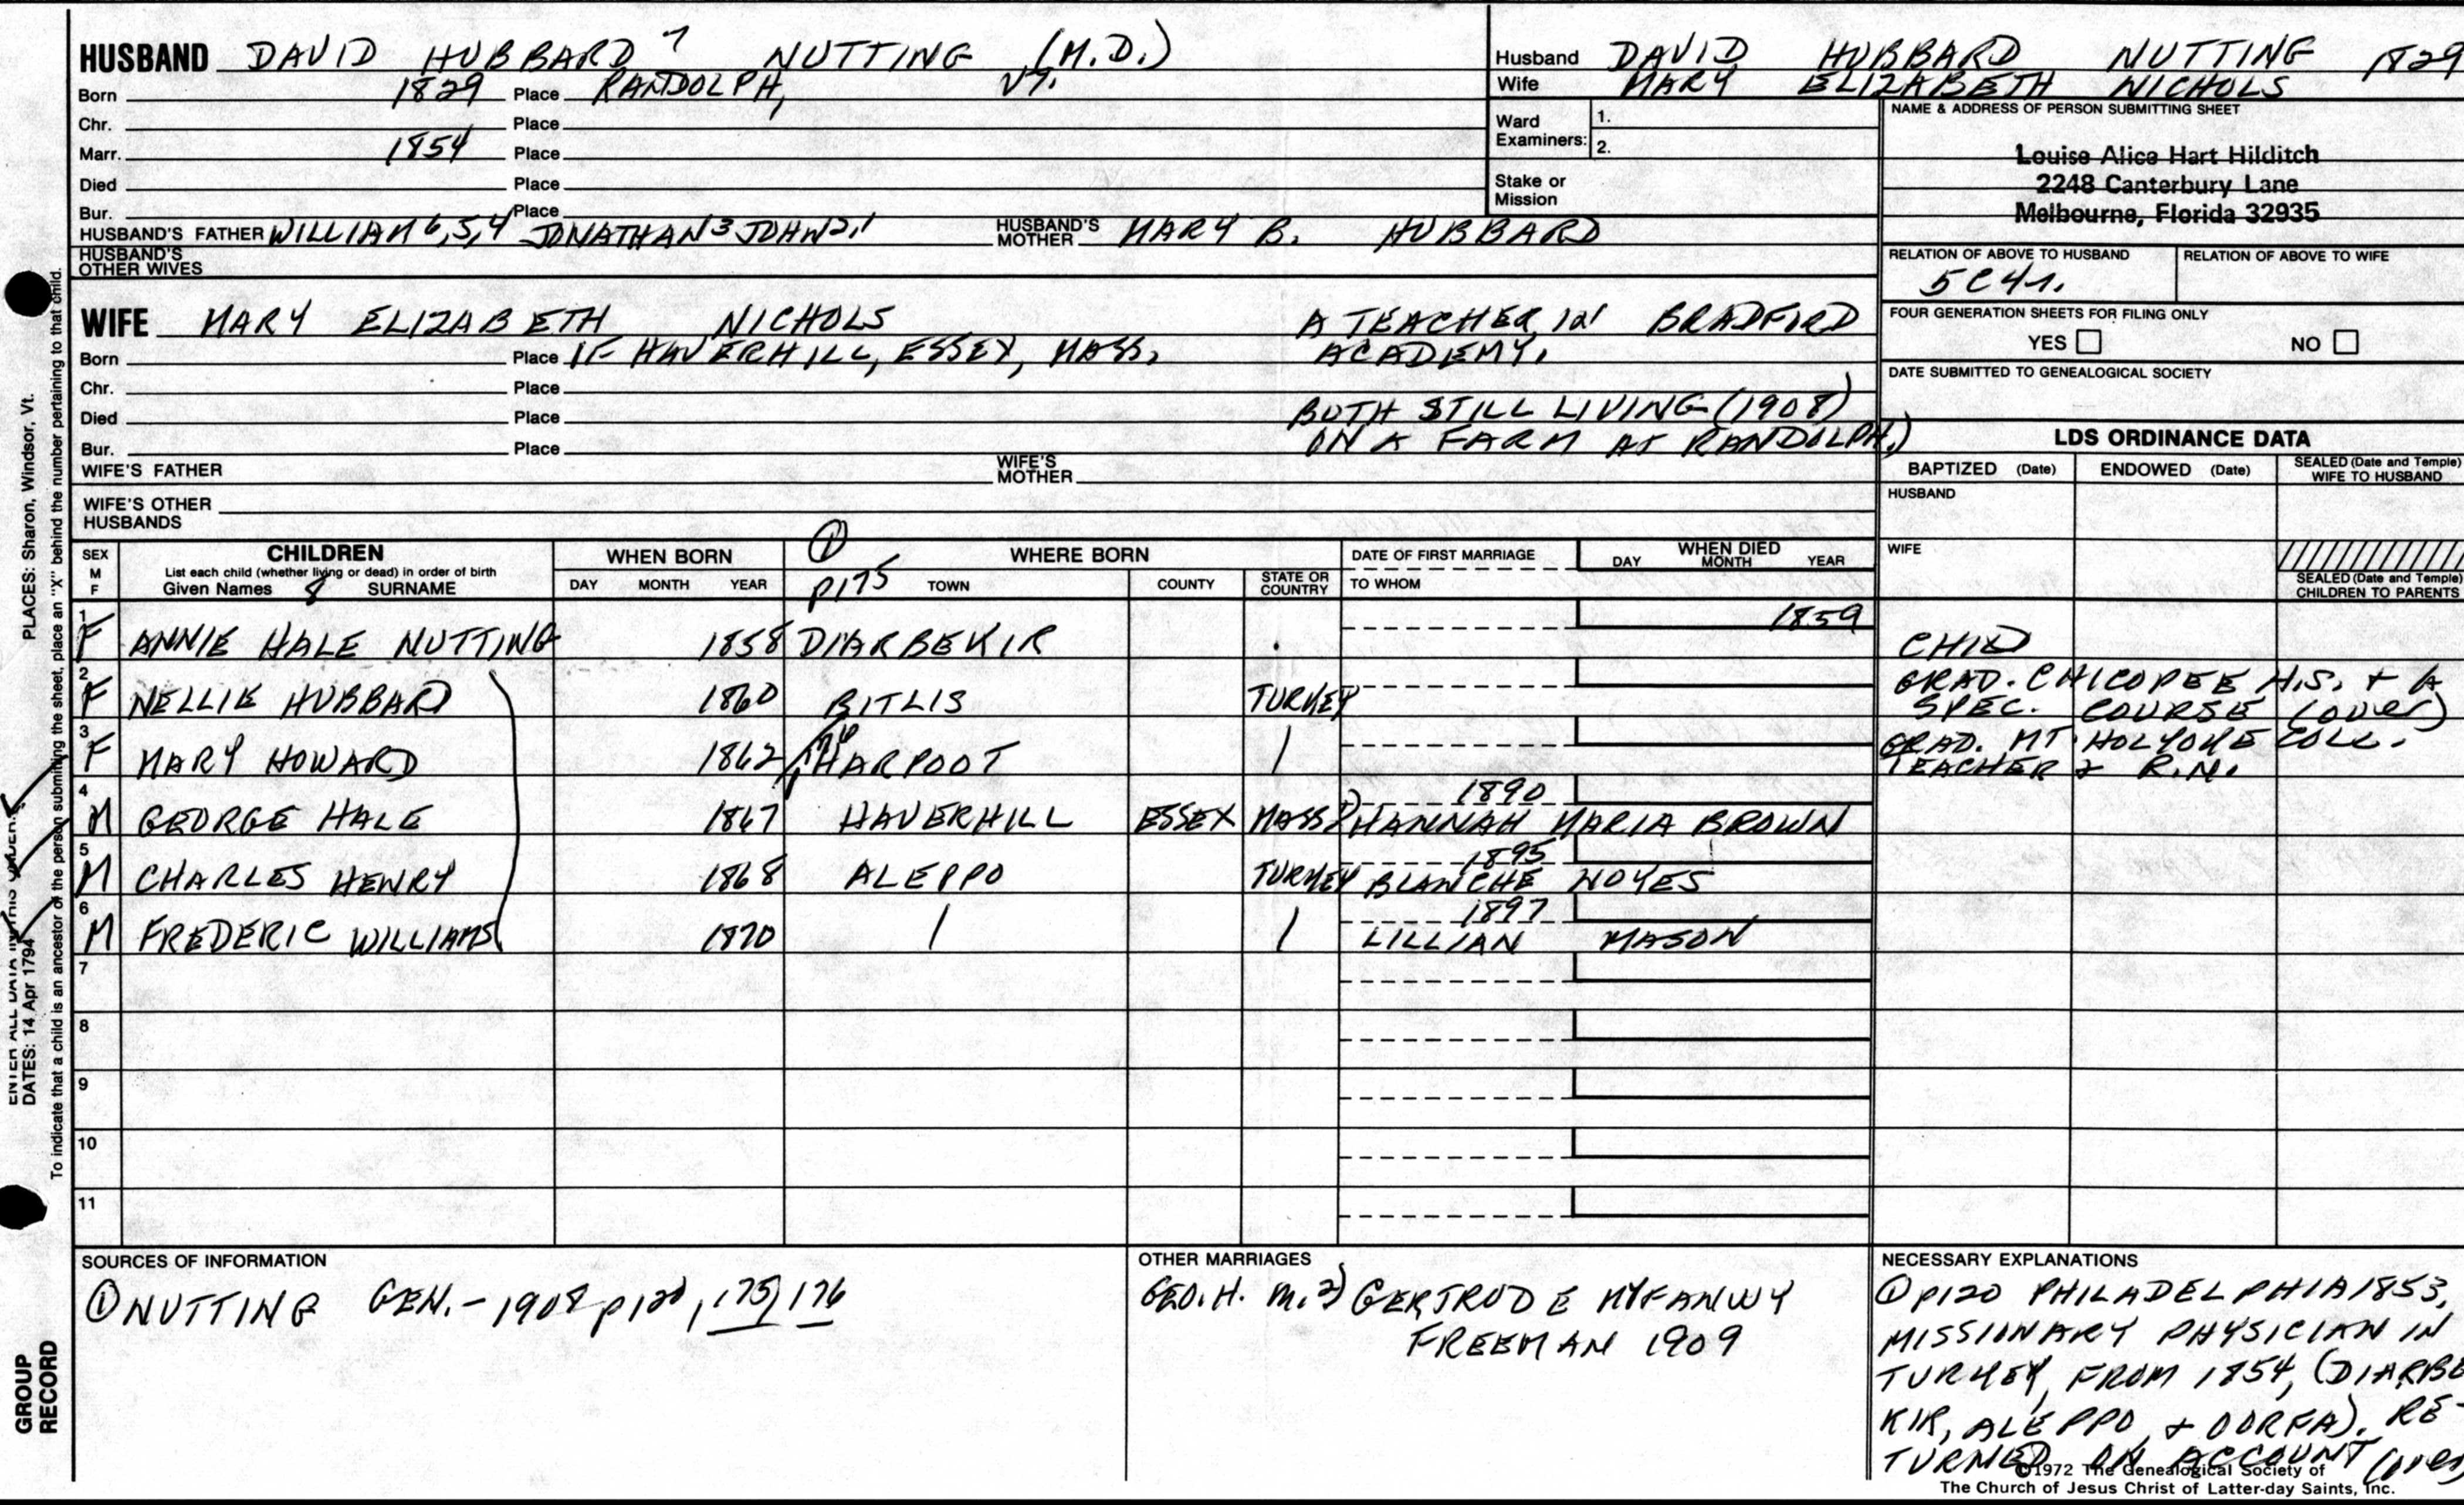 HUSBAND DAVID HUBBARD 7 NUTTING (M.D.)
Born 1829 Place RANDOLPH, VT.
Chr. Place
Marr. 1854 Place
Died Place
Bur. Place
HUSBAND'S FATHER WILLIAM 6,5,4 JONATHAN 3 JOHN 2,1 HUSBAND'S MOTHER MARY B. HUBBARD
HUSBAND'S OTHER WIVES
WIFE MARY ELIZABETH NICHOLS A TEACHER IN BRADFORD
Born Place OF HAVERHILL, ESSEX, MASS. ACADEMY.
Chr. Place
Died Place BOTH STILL LIVING (1908)
Bur. Place ON A FARM AT RANDOLPH.)
WIFE'S FATHER WIFE'S MOTHER
WIFE'S OTHER HUSBANDS
Husband DAVID HUBBARD NUTTING 1829
Wife MARY ELIZABETH NICHOLS
Ward Examiners: 1.
2.
Stake or Mission
NAME & ADDRESS OF PERSON SUBMITTING SHEET
Louise Alice Hart Hilditch
2248 Canterbury Lane
Melbourne, Florida 32935
RELATION OF ABOVE TO HUSBAND RELATION OF ABOVE TO WIFE
5C4r.
FOUR GENERATION SHEETS FOR FILING ONLY
YES NO
DATE SUBMITTED TO GENEALOGICAL SOCIETY
LDS ORDINANCE DATA
BAPTIZED (Date) ENDOWED (Date) SEALED (Date and Temple) WIFE TO HUSBAND
HUSBAND
WIFE
SEALED (Date and Temple) CHILDREN TO PARENTS
SEX M F CHILDREN WHEN BORN ① WHERE BORN DATE OF FIRST MARRIAGE WHEN DIED
List each child (whether living or dead) in order of birth
Given Names 8 SURNAME DAY MONTH YEAR p175 TOWN COUNTY STATE OR COUNTRY TO WHOM DAY MONTH YEAR
1 F ANNIE HALE NUTTING 1858 DIARBEKIR 1859 CHILD
2 F NELLIE HUBBARD 1860 BITLIS TURKEY GRAD. CHICOPEE H.S. + A
SPEC. COURSE (over)
3 F MARY HOWARD 1862 HARPOOT GRAD. MT. HOLYOKE COLL.
TEACHER & R.N.
4 M GEORGE HALE 1867 HAVERHILL ESSEX MASS 1) 1890
HANNAH MARIA BROWN
5 M CHARLES HENRY 1868 ALEPPO TURKEY 1895
BLANCHE NOYES
6 M FREDERIC WILLIAMS 1870 1897
LILLIAN MASON
7
8
9
10
11
SOURCES OF INFORMATION
① NUTTING GEN. - 1908 p120, 175, 176
OTHER MARRIAGES
GEO. H. m. 2) GERTRUDE MYFANWY
FREEMAN 1909
NECESSARY EXPLANATIONS
① p120 PHILADELPHIA 1853,
MISSIONARY PHYSICIAN IN
TURKEY, FROM 1854, (DIARBE
KIR, ALEPPO, + OORFA). RE-
TURNED ON ACCOUNT (over)
©1972 The Genealogical Society of
The Church of Jesus Christ of Latter-day Saints, Inc.
PLACES: Sharon, Windsor, Vt.
To indicate that a child is an ancestor of the person submitting the sheet, place an "X" behind the number pertaining to that child.
ENTER ALL DATA IN THIS ORDER:
DATES: 14 Apr 1794
GROUP
RECORD